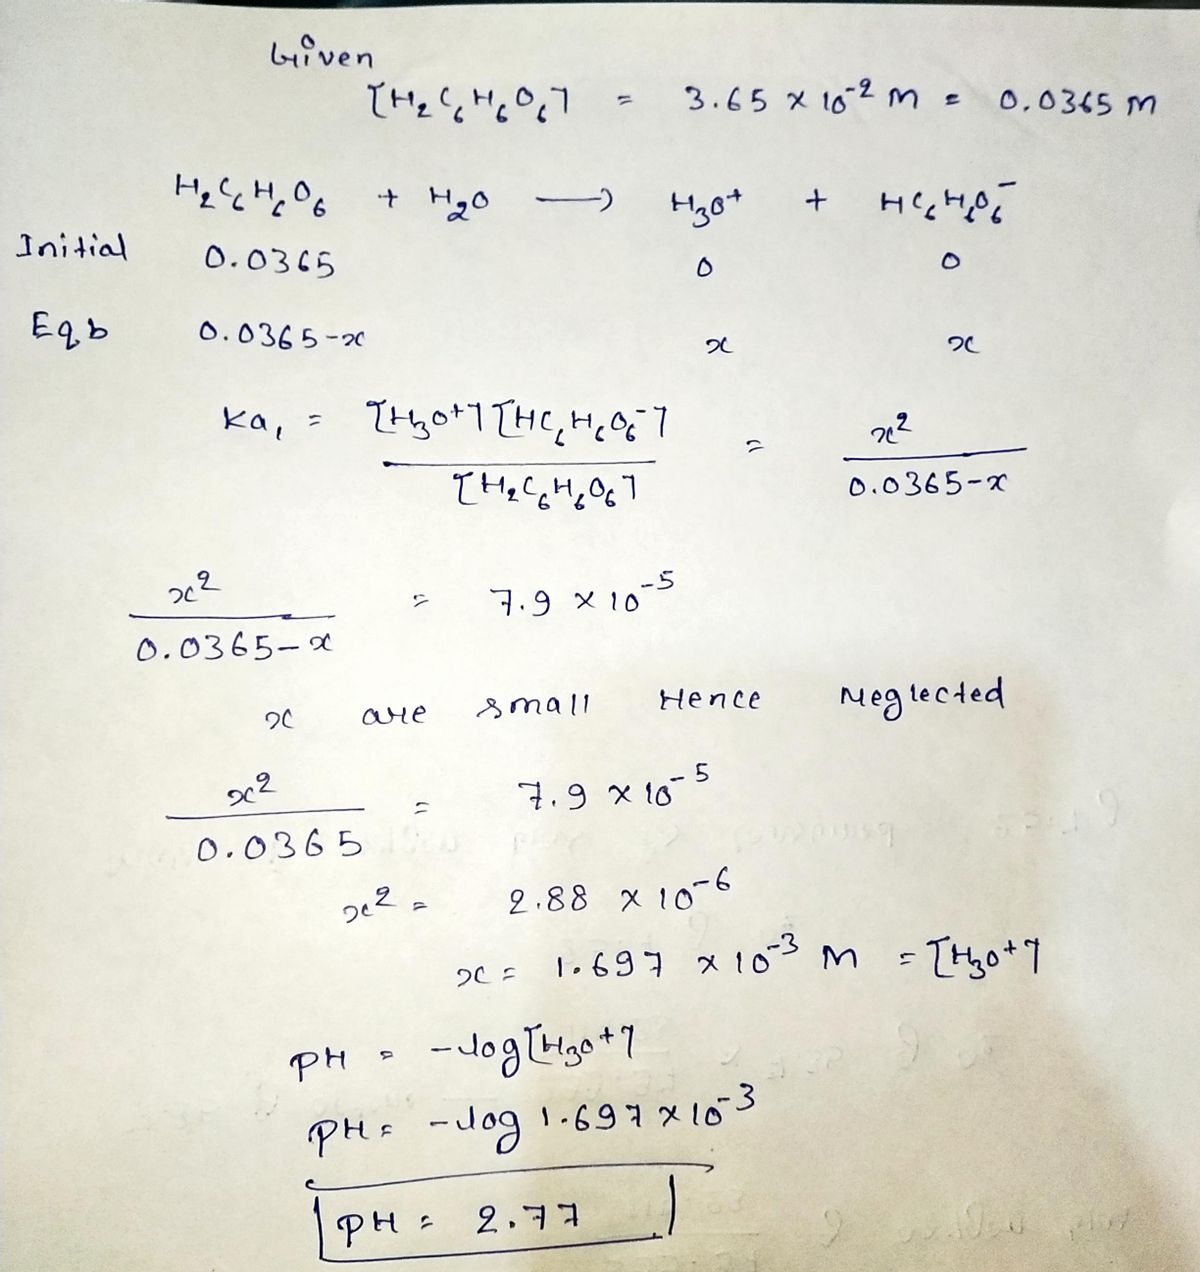 Given
[H₂C₆H₆O₆] = 3.65 × 10⁻² M = 0.0365 M
H₂C₆H₆O₆ + H₂O ⟶ H₃O⁺ + HC₆H₆O₆⁻
Initial 0.0365 0 0
Eqb 0.0365-x x x
Ka₁ = [H₃O⁺][HC₆H₆O₆⁻] / [H₂C₆H₆O₆] = x² / 0.0365-x
x² / 0.0365-x = 7.9 × 10⁻⁵
x are small Hence Neglected
x² / 0.0365 = 7.9 × 10⁻⁵
x² = 2.88 × 10⁻⁶
x = 1.697 × 10⁻³ M = [H₃O⁺]
PH = -log[H₃O⁺]
PH = -log 1.697 × 10⁻³
PH = 2.77